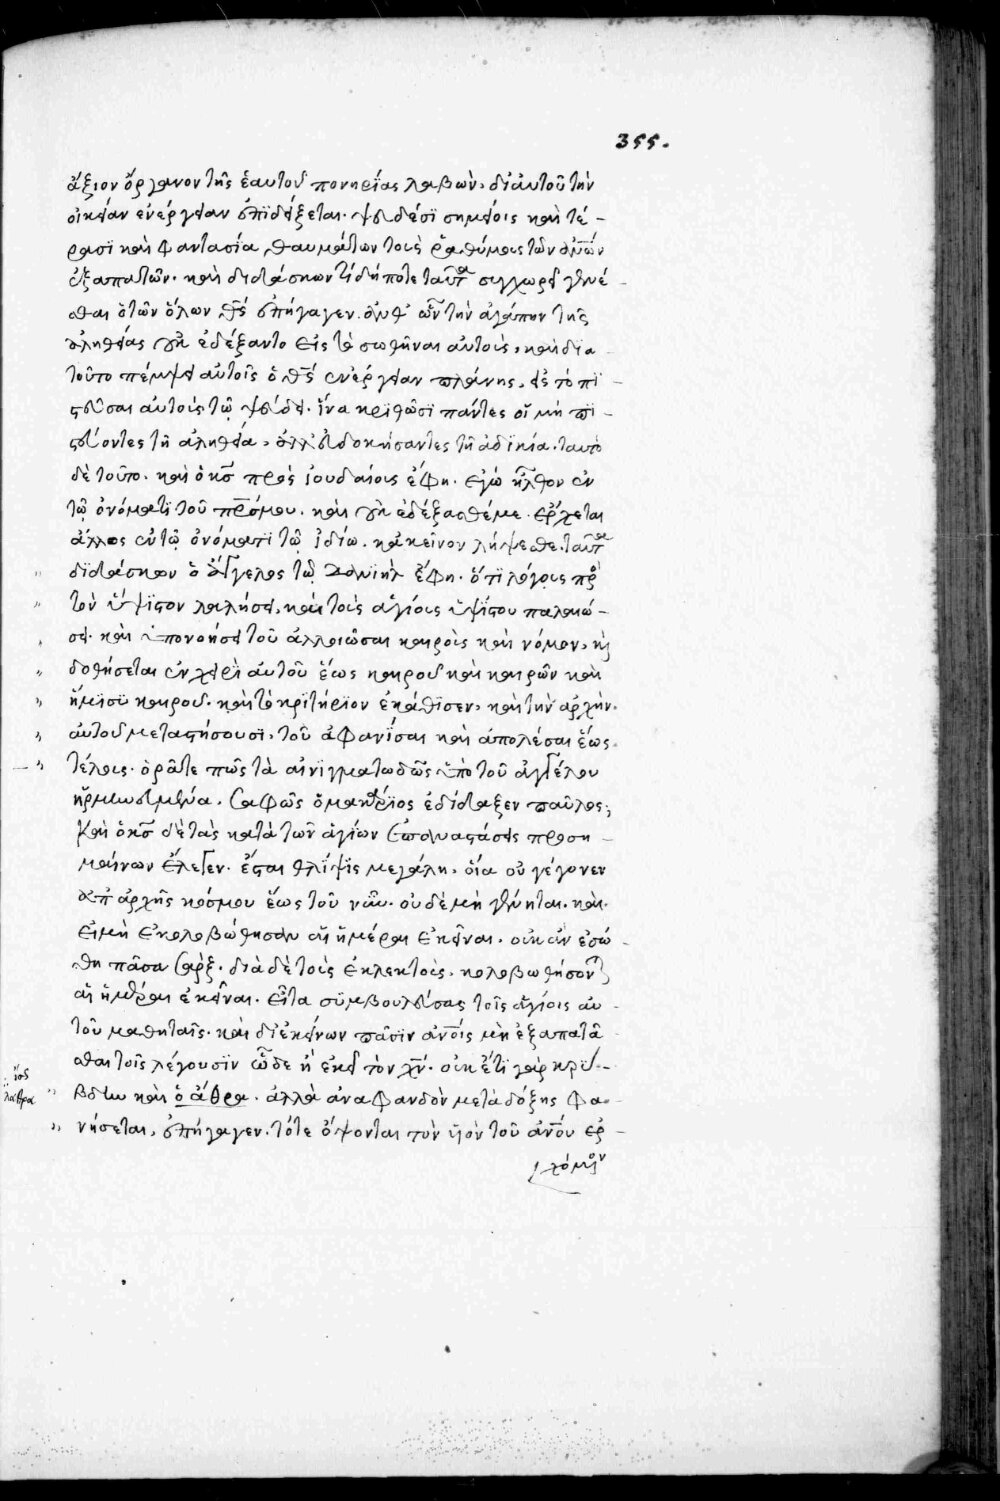 355.
ἄξιον ὄργανον τῆς ἑαυτοῦ πονηρίας λαβὼν, δι' αὐτοῦ τὴν
οἰκείαν ἐνέργειαν ἐπιδείξεται. ψευδέσι σημείοις καὶ τέ-
ρασι καὶ φαντασία θαυμάτων τοὺς ῥαθύμους τῶν ἀν̅ω̅ν
ἐξαπατῶν. καὶ διδάσκων τί δήποτε ταῦτα συγχωρεῖ γενέ-
σθαι ὁ τῶν ὅλων θ̅ς̅ ἐπήγαγεν. ἀνθ' ὧν τὴν ἀγάπην τῆς
ἀληθείας οὐκ ἐδέξαντο εἰς τὸ σωθῆναι αὐτοὺς, καὶ δια
τοῦτο πέμψει αὐτοῖς ὁ θ̅ς̅ ἐνέργειαν πλάνης, εἰς τὸ πι-
στεῦσαι αὐτοὺς τῷ ψεύδει. ἵνα κριθῶσι πάντες οἱ μὴ πι-
στεύοντες τῇ ἀληθεία, ἀλλ' εὐδοκήσαντες τῇ ἀδικία. ταυτὸ
δὲ τοῦτο. καὶ ὁ κ̅ς̅ πρὸς ἰουδαίους ἔφη. ἐγὼ ἦλθον ἐν
τῷ ὀνόματι τοῦ π̅ρ̅ς μου. καὶ οὐκ ἐδέξασθέ με. ἔρχεται
ἄλλος ἐν τῷ ὀνόματι τῷ ἰδίω. κἀκεῖνον λήψεσθε. ταῦτα
διδάσκων ὁ ἄγγελος τῷ Δανιὴλ ἔφη. ὅτι λόγους πρὸ
τὸν ὕψιστον λαλήσει, καὶ τοὺς ἁγίους ὑψίστου παλαιώ-
σει. καὶ ὑπονοήσει τοῦ ἀλλοιῶσαι καιροὺς καὶ νόμον, κ̀
δοθήσεται ἐν χειρὶ αὐτοῦ ἕως καιροῦ καὶ καιρῶν καὶ
ἥμισυ καιροῦ. καὶ τὸ κριτήριον ἐκάθισεν, καὶ τὴν ἀρχὴν
αὐτοῦ μεταστήσουσι, τοῦ ἀφανίσαι καὶ ἀπολέσαι ἕως
τέλους. ὁρᾶτε πῶς τὰ αἰνιγματωδῶς ὑπὸ τοῦ ἀγγέλου
ἡρμηνευμένα. σαφῶς ὁ μακάριος ἐδίδαξεν παῦλος,
καὶ ὁ κ̅ς̅ δὲ τὰς κατὰ τῶν ἁγίων ἐπαναστάσεις προση-
μαίνων ἔλεγεν. ἔσται θλίψις μεγάλη, οἵα οὐ γέγονεν
ἀπ' ἀρχῆς κόσμου ἕως τοῦ νῦν. οὐδὲ μὴ γένηται. καὶ
εἰ μὴ ἐκολοβώθησαν αἱ ἡμέραι ἐκεῖναι. οὐκ ἂν ἐσώ-
θη πᾶσα σὰρξ. διὰ δὲ τοὺς ἐκλεκτοὺς. κολοβωθήσοντ
αἱ ἡμέραι ἐκεῖναι. εἶτα συμβουλεύσας τοῖς ἁγίοις αὐ-
τοῦ μαθηταῖς. καὶ δι' ἐκείνων πᾶσιν ἀν̅ο̅ις μὴ ἐξαπατᾶ-
σθαι τοῖς λέγουσιν ὧδε ἢ ἐκεῖ τὸν χ̅ν̅. οὐκ έτι γὰρ κρύ-
βδην καὶ ὁ ἄθρα. ἀλλὰ ἀναφανδὸν μετὰ δόξης φα-
λάθρα
νήσεται, ἐπήγαγεν. τότε ὄψονται τὸν υἱὸν τοῦ ἀν̅ο̅υ ἐρ-
χόμενον